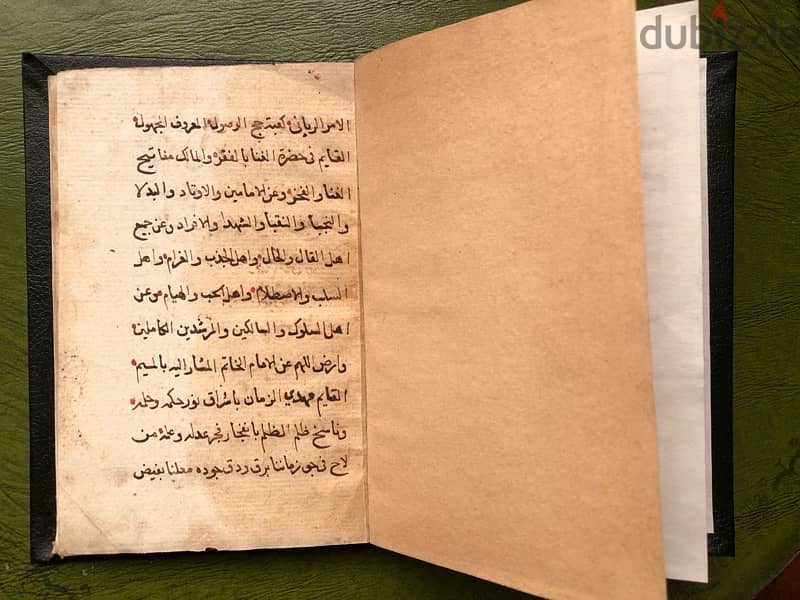 dubizzle
الامر الربانى كعبة حج الوصول المعروف المجهول
القايم فى حضرة الغنا بالفقر والمالك مفاتيح
الغنا والفخر وعن الامامين والاوتاد والبدلا
والنجبا والنقبا والشهدا والافراد وعن جميع
اهل القال والحال واهل الجذب والغرام واهل
السلب والاصطلام واهل الحب والهيام وعن
اهل السلوك والسالكين والمرشدين الكاملين
وارض اللهم عن الامام الخاتم المشار اليه بالميم
القايم مهدي الزمان باشراق نور حكمه وحلمه
وناسخ ظلم الظلم بانفجار فجر عدله وعن من
لاح فى جو زماننا برق ودق جوده معلنا بفيض